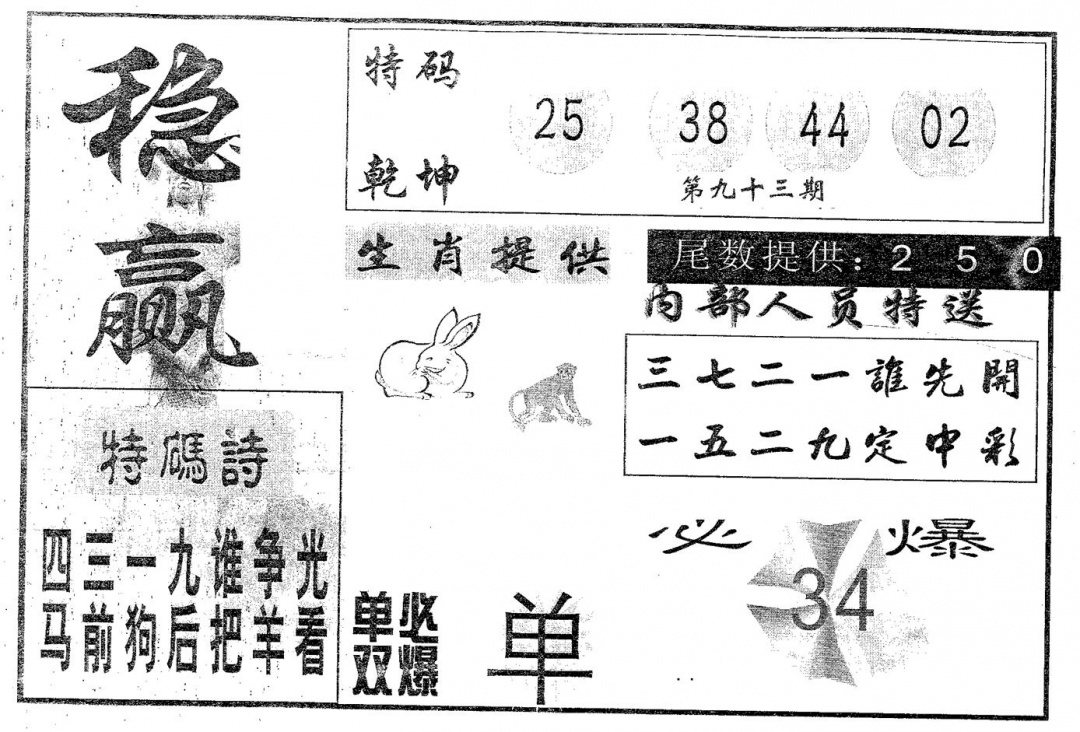 稳赢
特码
乾坤
25 38 44 02
第九十三期
生肖提供
尾数提供：2 5 0
内部人员特送
三七二一誰先開
一五二九定中彩
特碼詩
四三一九谁争光
马前狗后把羊看
必爆
34
单双
必爆
单